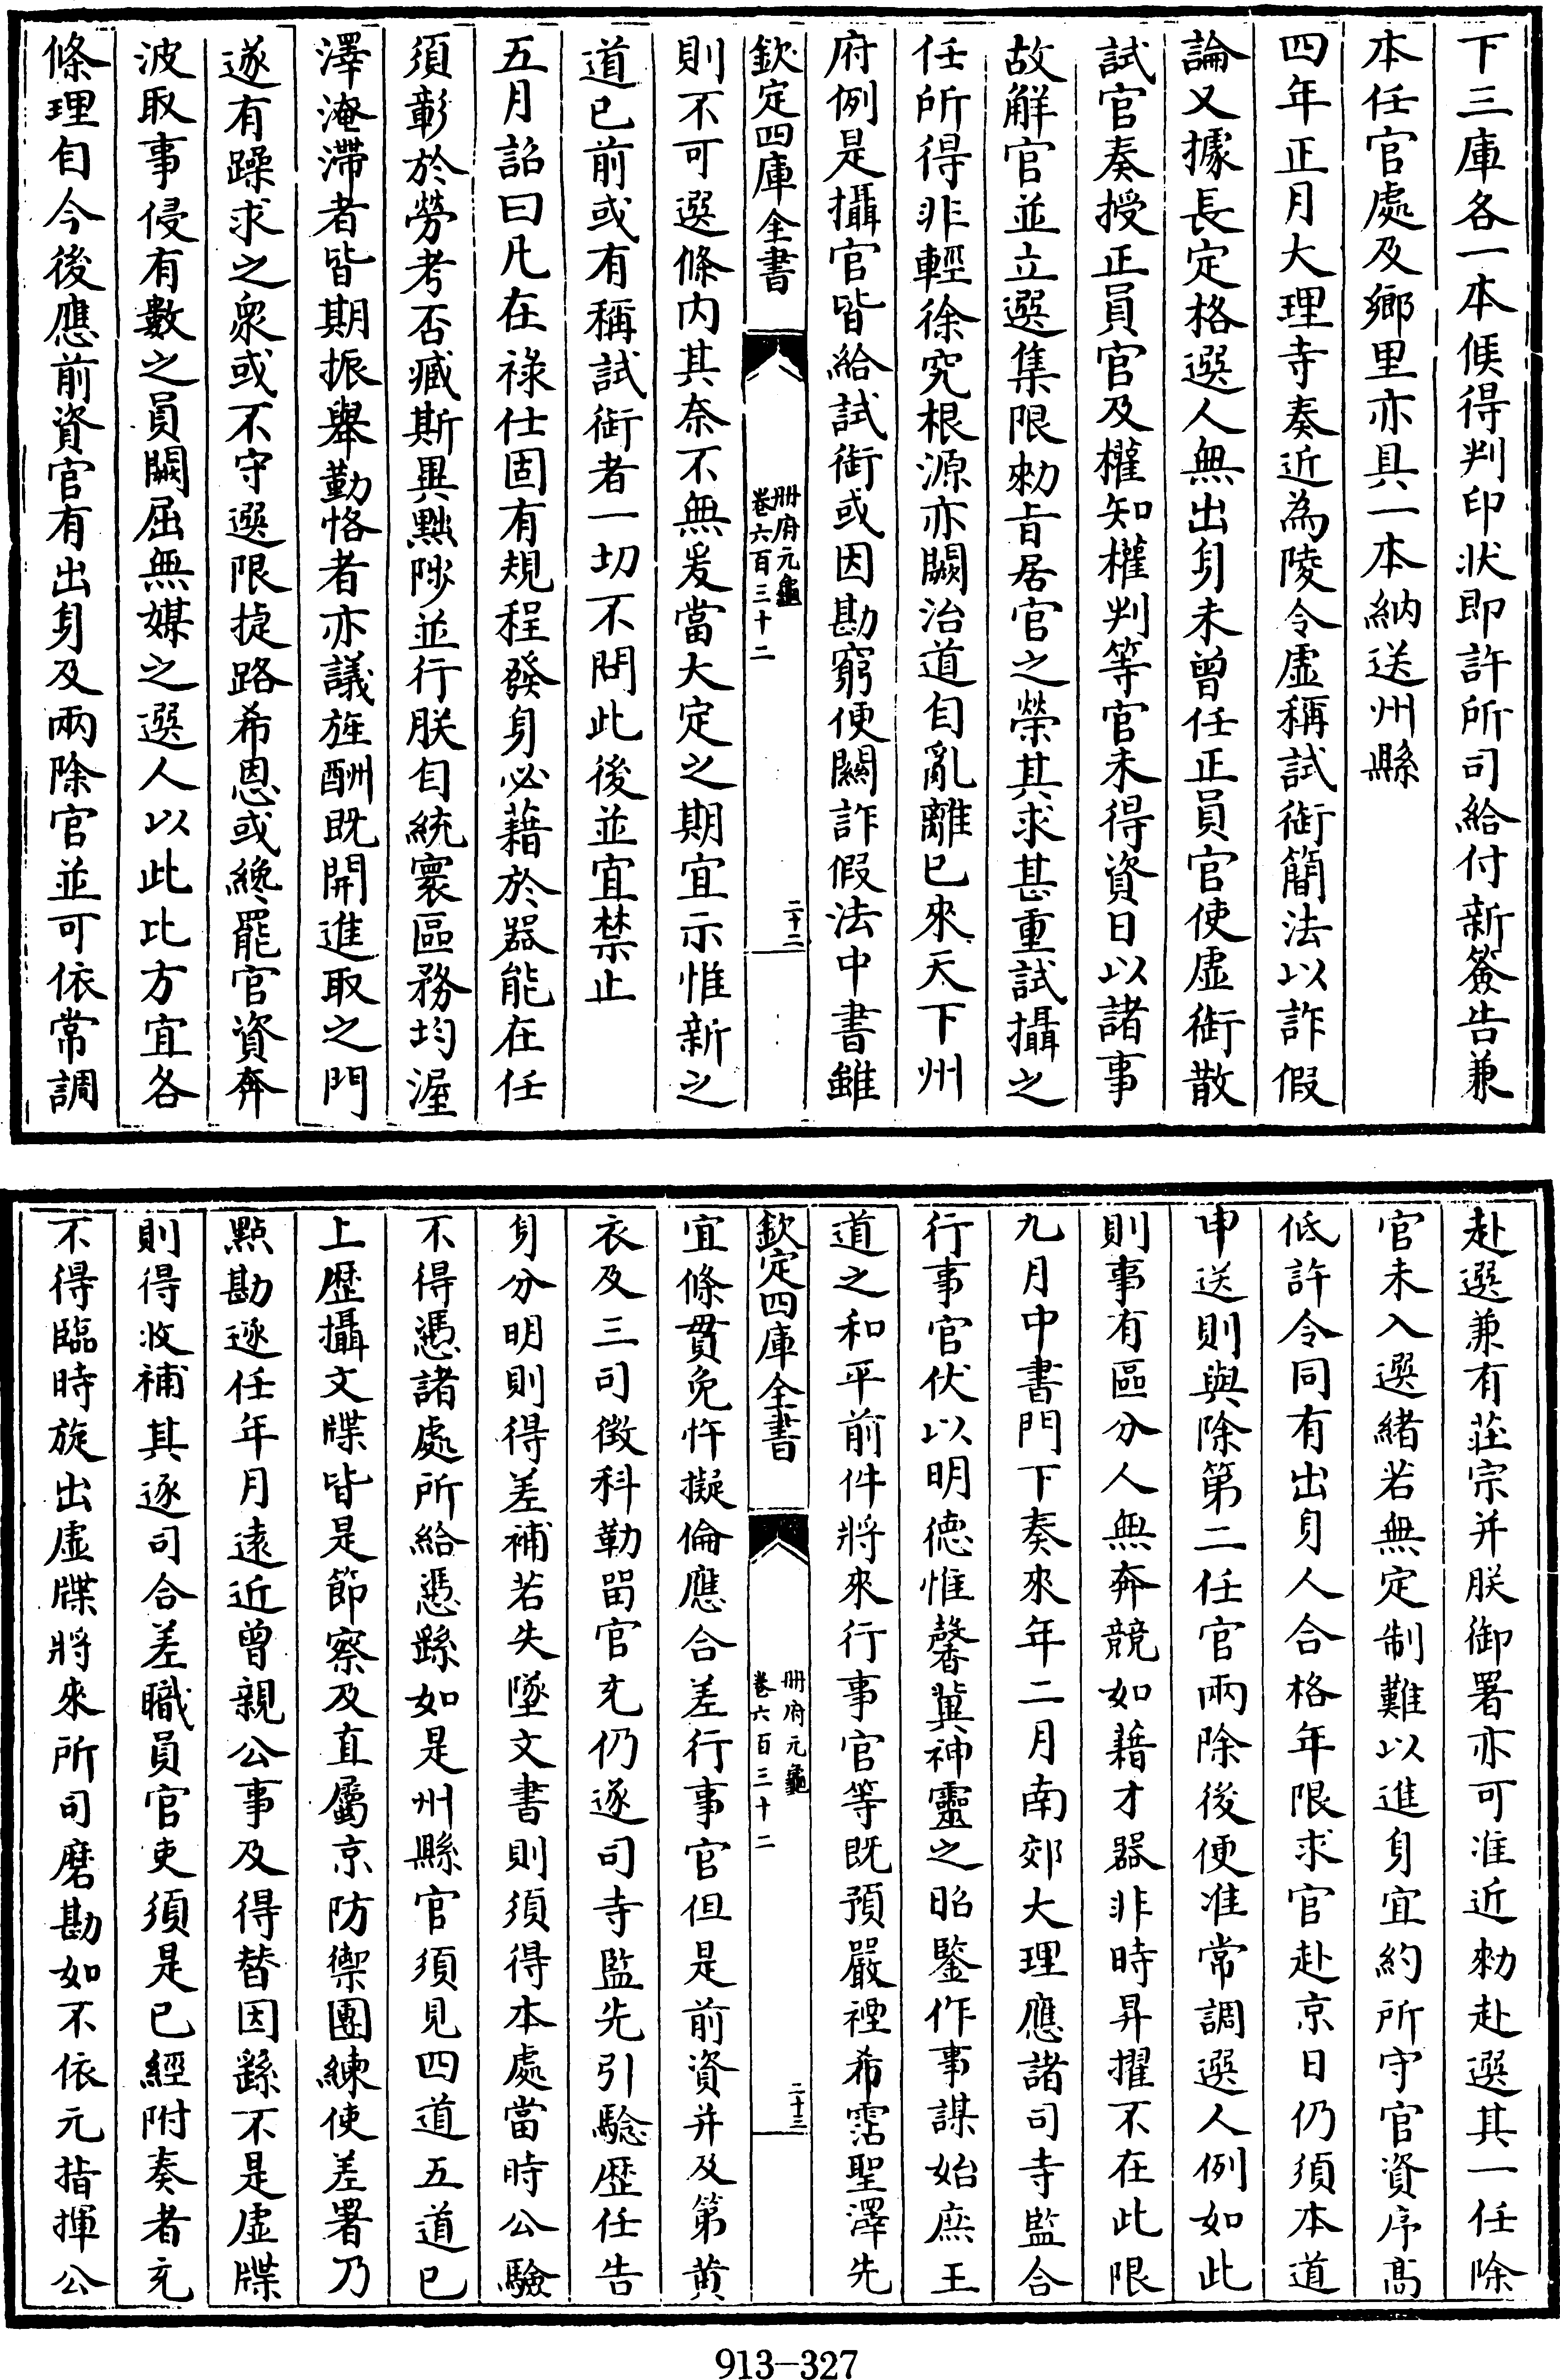 下三庫各一本候得判印狀即許所司給付新簽告兼
本任官處及鄉里亦具一本納送州縣
四年正月大理寺奏近為陵令虛稱試銜簡法以詐假
論又據長定格選人無出身未曾任正員官使虛銜散
試官奏授正員官及權知權判等官未得資日以諸事
故解官並立選集限勑旨居官之榮其求甚重試攝之
任所得非輕徐究根源亦闕治道自亂離已來天下州
府例是攝官皆給試銜或因勘窮便關詐假法中書雖
欽定四庫全書
冊府元龜
卷六百三十二
二十二
則不可選條内其奈不無爰當大定之期宜示惟新之
道已前或有稱試銜者一切不問此後並宜禁止
五月詔曰凡在祿仕固有規程發身必藉於器能在任
須彰於勞考否臧斯異黜陟並行朕自統寰區務均渥
澤淹滯者皆期振舉勤恪者亦議旌酬既開進取之門
遂有躁求之衆或不守選限捷路希恩或纔罷官資奔
波取事侵有數之員闕屈無媒之選人以此比方宜各
條理自今後應前資官有出身及兩除官並可依常調
赴選兼有莊宗并朕御署亦可准近勑赴選其一任除
官未入選緒若無定制難以進身宜約所守官資序高
低許令同有出身人合格年限求官赴京日仍須本道
申送則與除第二任官兩除後便准常調選人例如此
則事有區分人無奔競如藉才器非時昇擢不在此限
九月中書門下奏來年二月南郊大理應諸司寺監合
行事官伏以明德惟馨冀神靈之昭鑒作事謀始庶王
道之和平前件將來行事官等既預嚴禋希霑聖澤先
欽定四庫全書
冊府元龜
卷六百三十二
二十三
宜條貫免忤擬倫應合差行事官但是前資并及第黄
衣及三司徴科勒留官充仍逐司寺監先引驗歴任告
身分明則得差補若失墜文書則須得本處當時公驗
不得憑諸處所給憑繇如是州縣官須見四道五道已
上歴攝文牒皆是節察及直屬京防禦團練使差署乃
點勘逐任年月遠近曾親公事及得替因繇不是虛牒
則得收補其逐司合差職員官吏須是已經附奏者充
不得臨時旋出虛牒將來所司磨勘如不依元指揮公
913-327